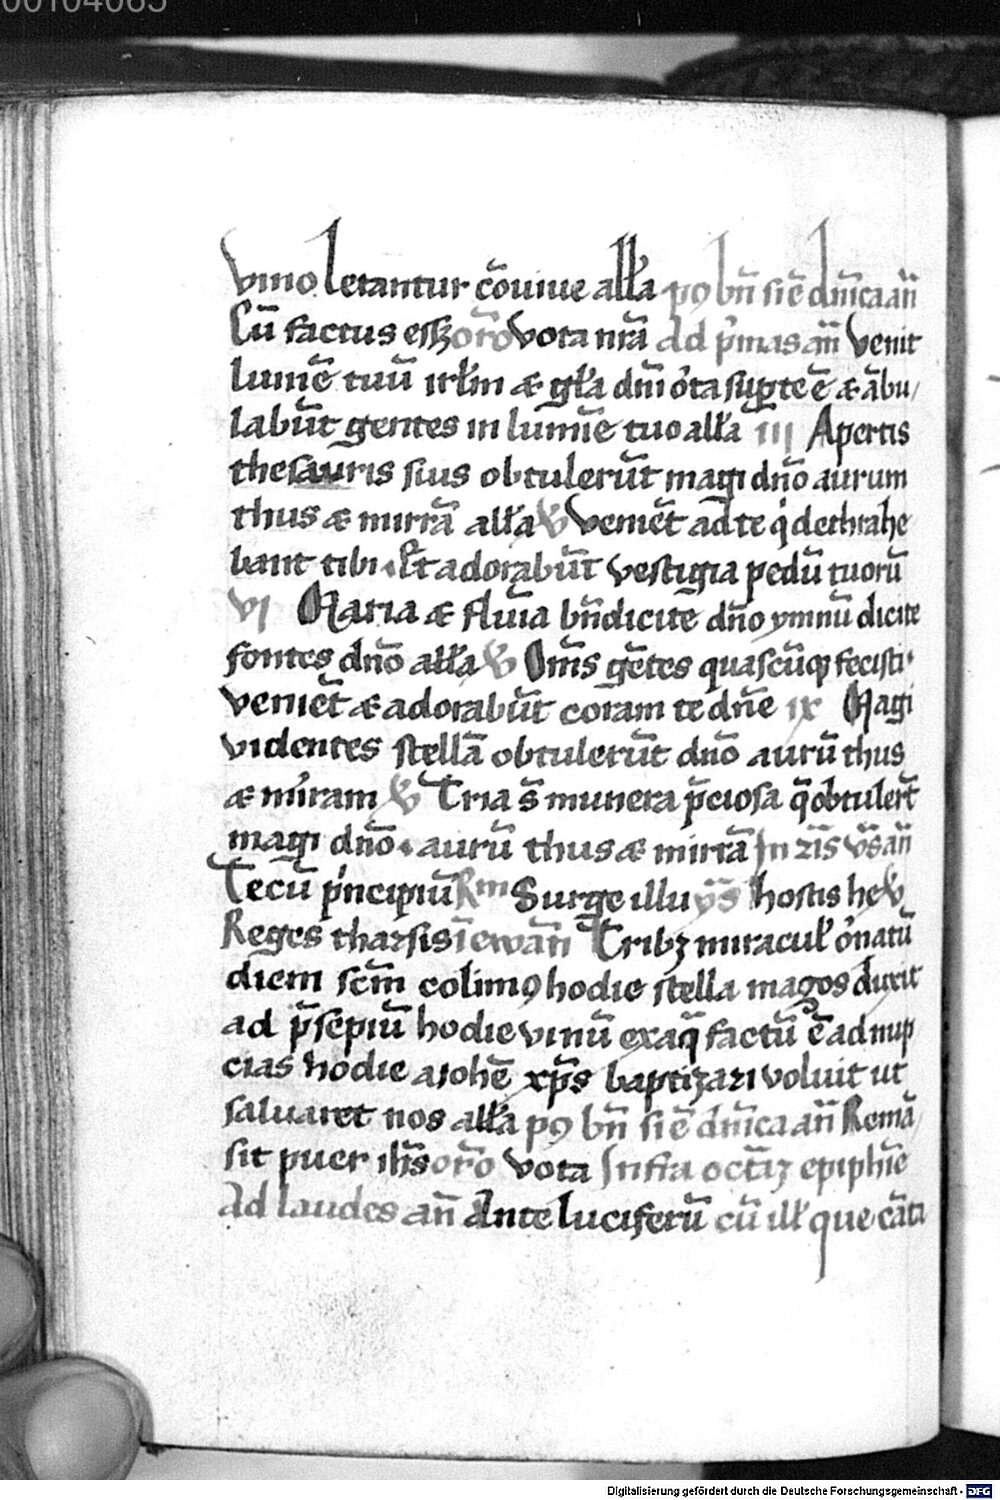 00104065
vino letantur cōuiue ałła p9 bn̄ siē dn̄ica an̄
Cū factus essꝫ or̄o vota nr̄a Ad p̄mas an̄ Venit
lumē tuū irl̄m & gl̄a dn̄i orta sup te ē & ābu/
labūt gentes in lumīe tuo ałła iii Apertis
thesauris suis obtulerūt magi dn̄o aurum
thus & mirrā ałła V Veniēt ad te q' dethrahe
bant tibi · Et adorabūt vestigia pedū tuorū
vi Maria & flūia bn̄dicite dn̄o ymnū dicite
fontes dn̄o ałła V Om̄s gētes quascūqꝫ fecisti·
veniēt & adorabūt coram te dn̄e ix Magi
videntes stellā obtulerūt dn̄o aurū thus
& mirram V Tria s̄ munera p̄ciosa q̄ obtulerūt
magi dn̄o · aurū thus & mirrā In 2is vs̄ an̄
Tecū p'ncipiū Rm Surge illu ys̄ hostis he V
Reges tharsis ī ewān an̄ Tribꝫ miracuł ornatū
diem scm̄ colim9 hodie stella magos duxit
ad p̄sepiū hodie vinū ex aq̄ factū ē ad nup
cias hodie a iohē xp̄s baptizari voluit ut
saluaret nos ałła p9 bn̄ siē dn̄ica an̄ Remā/
sit puer ih̄s or̄o vota Infra octā epiphīe
Ad laudes an̄ Ante luciferū cū iłł que cāta
Digitalisierung gefördert durch die Deutsche Forschungsgemeinschaft - DFG